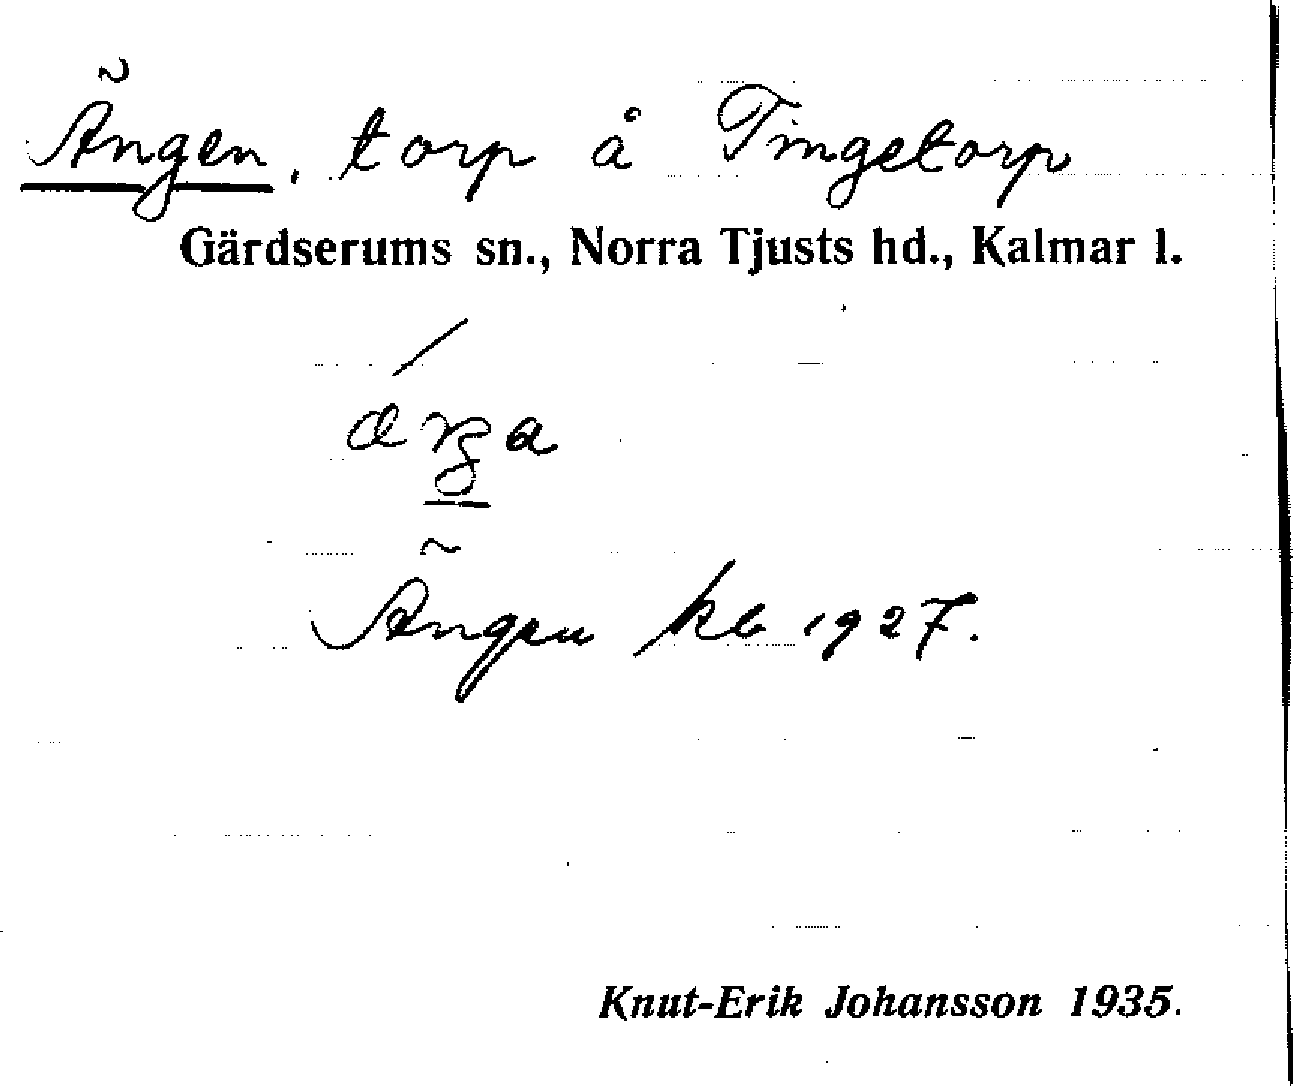 Ängen, torp å Tingetorp
Gärdserums sn., Norra Tjusts hd., Kalmar l.
Ängen kb 1927.
Knut-Erik Johansson 1935.